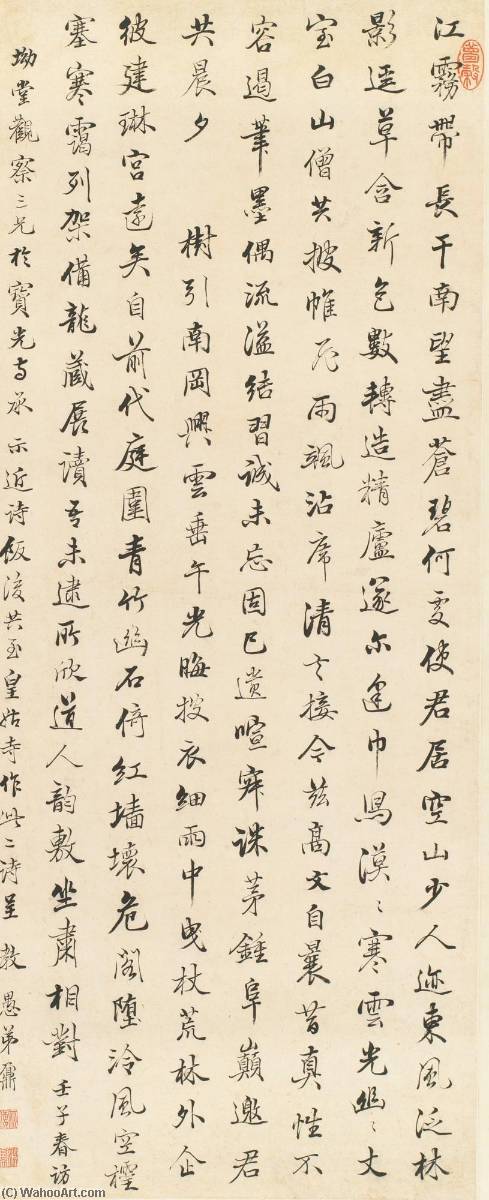 江霧帶長干南望盡蒼碧何處使君居空山少人迹東風泛林
影逕草含新色數轉造精廬遂尔逢巾舄漠〻寒雲光幽〻丈
室白山僧共披帷花雨颯沾席清言接今茲高文自曩昔真性不
容遏筆墨偶流溢結習誠未忘固已遺喧寂誅茅鍾阜巔邀君
共晨夕　樹引南岡興雲垂午光晦衣細雨中曳杖荒林外企
彼建琳宮遠矣自前代庭圍青竹幽石倚紅墻壞危閣墮泠風空
塞寒靄列架備龍藏展讀吾未逮所欣道人韻敷坐肅相對　壬子春訪
坳堂觀察三兄於寶光寺承示近詩飯後共至皇姑寺作此二詩呈教　愚弟鼐
(C) WahooArt.com
(C) WahooArt.com